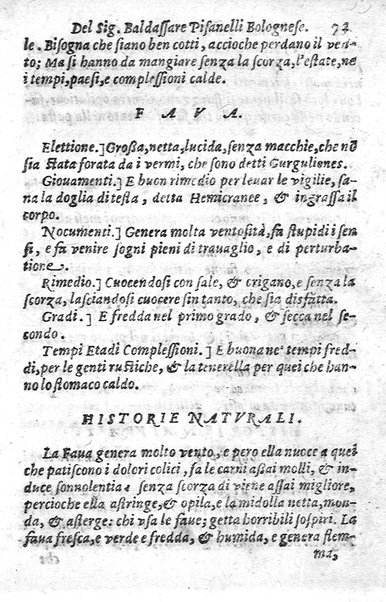 Del Sig. Baldassare Pisanelli Bolognese. 72
le. Bisogna che siano ben cotti, accioche perdano il ven
to; Ma si hanno da mangiare senza la scorza, l'estate, ne
i tempi, paesi, e complessioni calde.
FAVA.
Elettione.] Großa, netta, lucida, senza macchie, che nō
sia stata forata da i vermi, che sono detti Gurguliones.
Giouamenti.] E buon rimedio per leuar le vigilie, sa
na la doglia di testa, detta Hemicranee, & ingrassa il
corpo.
Nocumenti.] Genera molta ventosità, fà stupidi i sen
si, e fà venire sogni pieni di trauaglio, e di perturba
tione.
Rimedio.] Cuocendosi con sale, & origano, e senza la
scorza, lasciandosi cuocere sin tanto, che sia disfatta.
Gradi.] E fredda nel primo grado, & secca nel se
condo.
Tempi Etadi Complessioni.] E buona ne' tempi fred
di, per le genti rustiche, & la tenerella per quei che han
no lo stomaco caldo.
HISTORIE NATVRALI.
La Faua genera molto vento, e però ella nuoce a quei
che patiscono i dolori colici, fa le carni assai molli, & in
duce sonnolentia e senza scorza di viene assai migliore,
percioche ella astringe, & opila, e la midolla netta, mon
da, & asterge: chi vsa le faue; getta horribili sospiri. La
faua fresca, e verde e fredda, & humida, e genera flem-
ma,